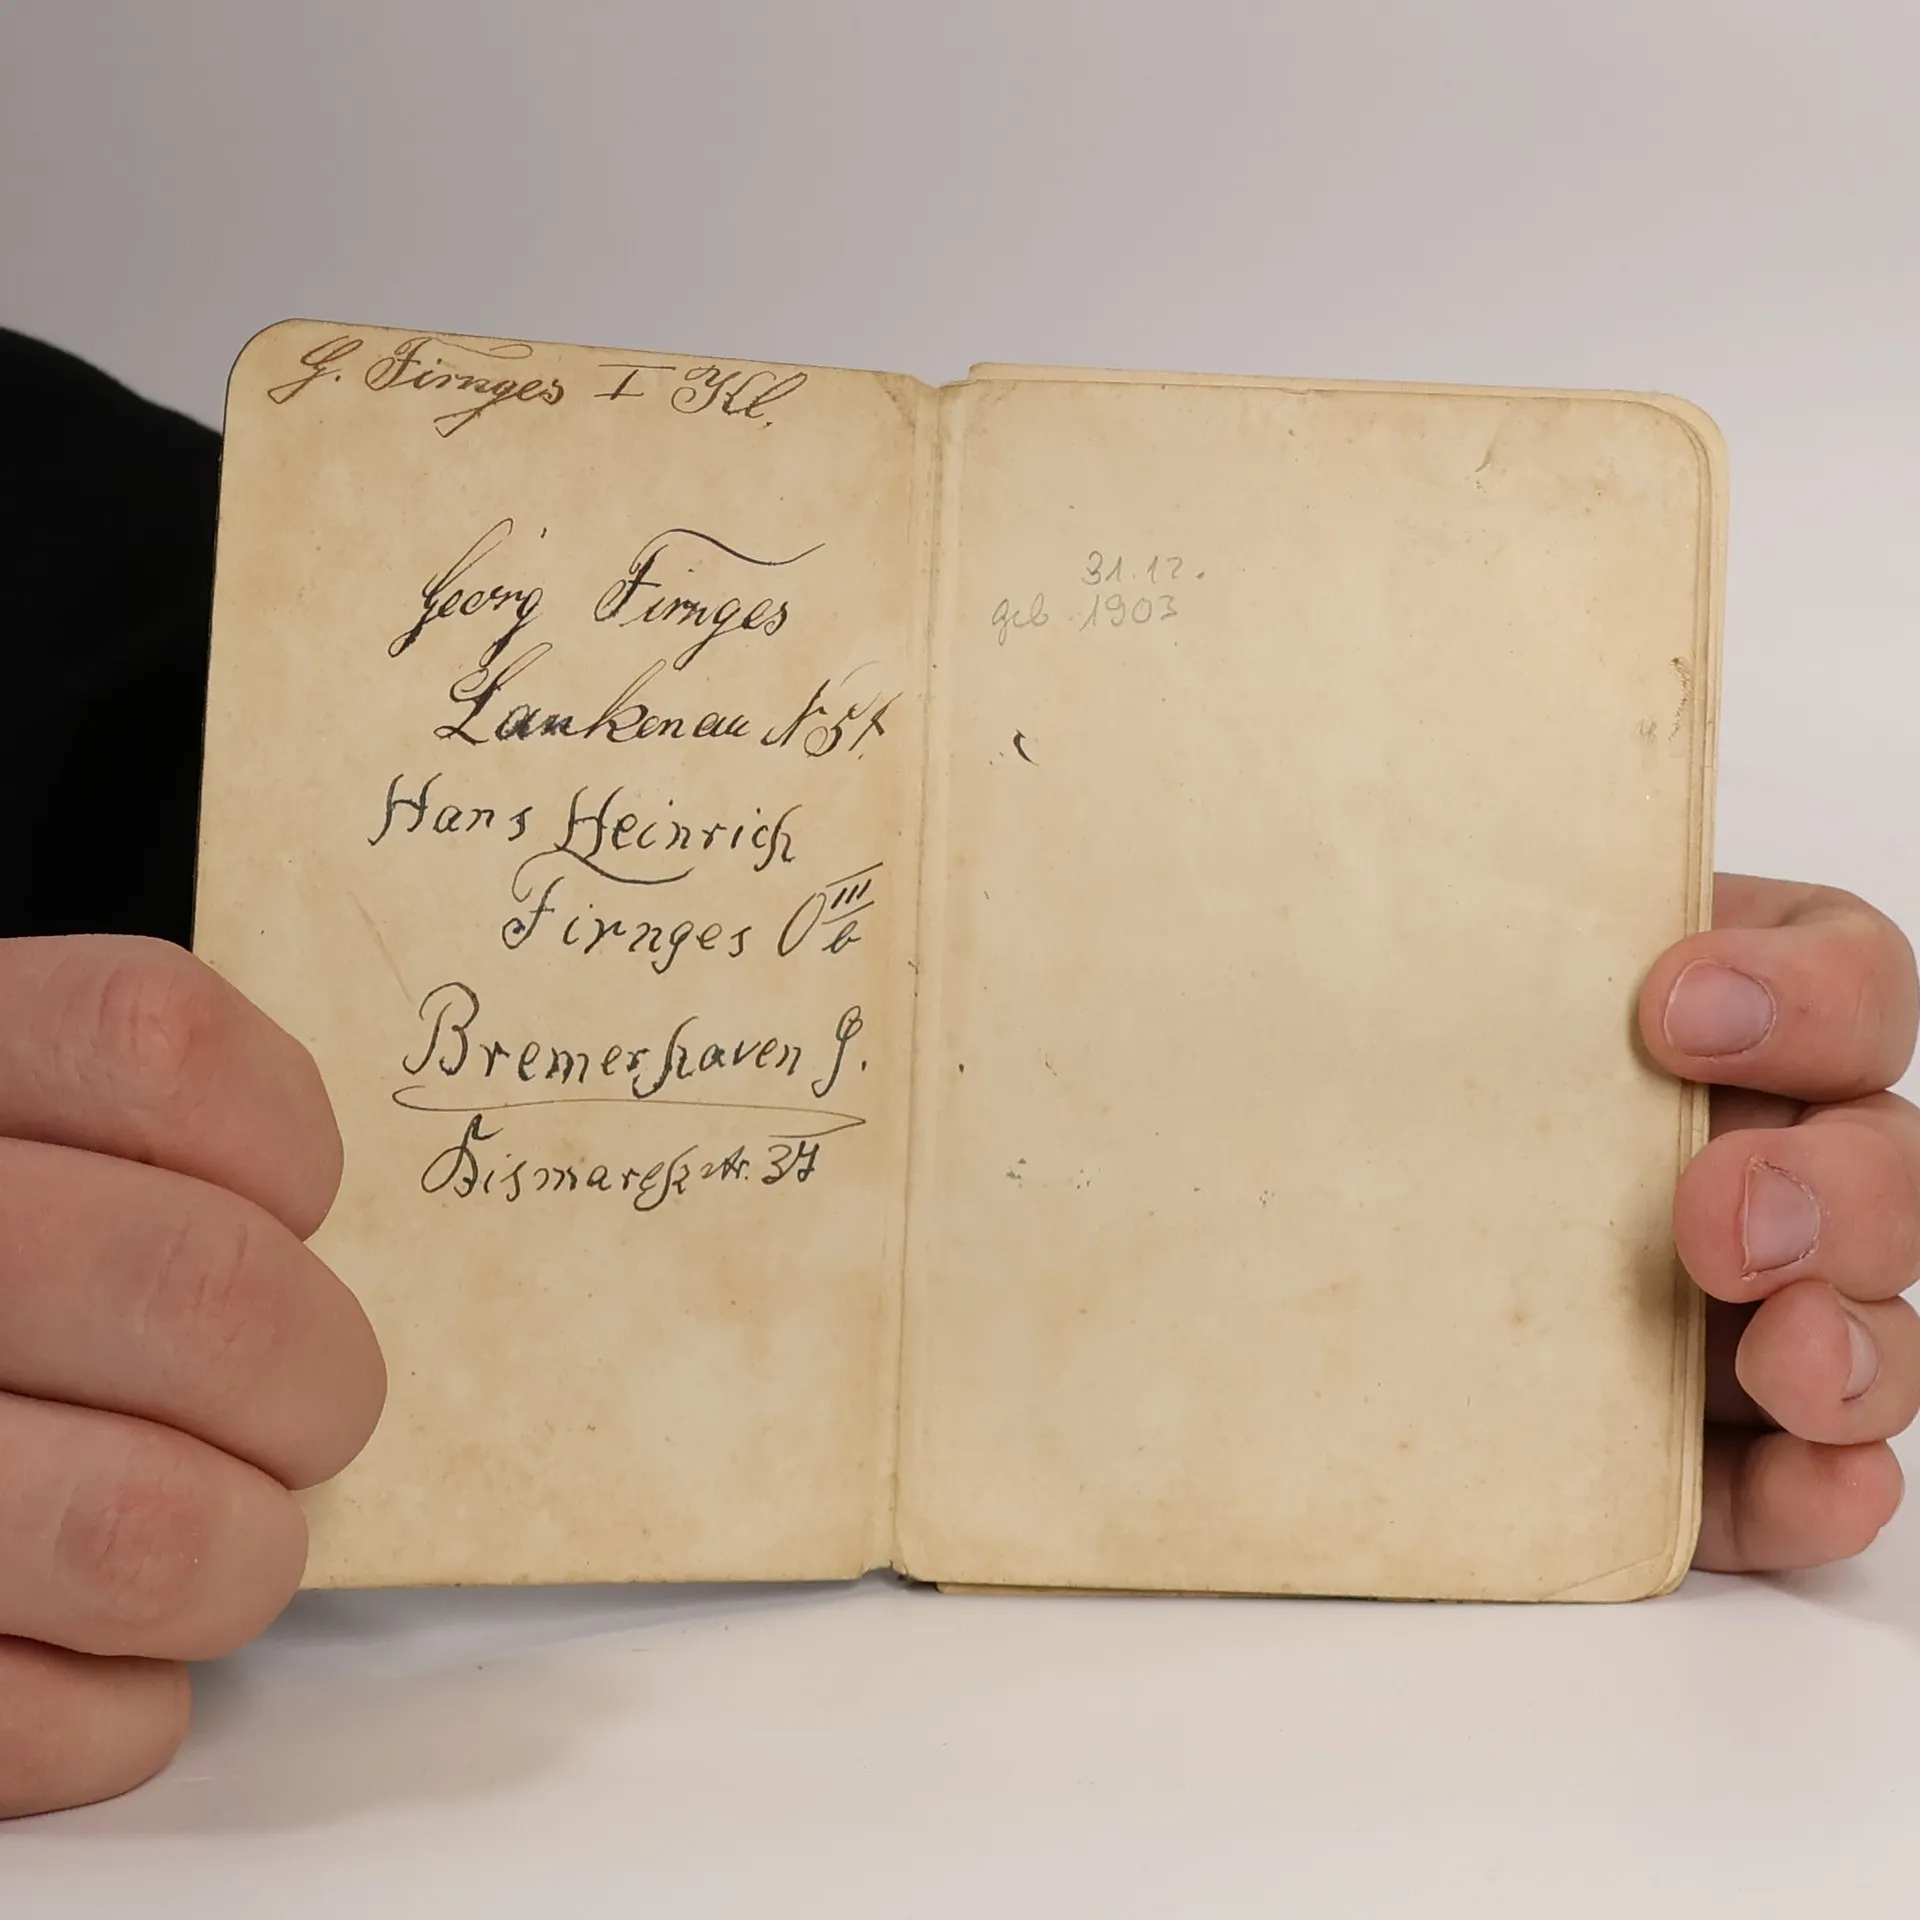 G. Firnges I Kl.
Georg Firnges
Lankenau N 51.
Hans Heinrich
Firnges O III b
Bremerhaven G.
Bismarckstr. 37
31.12.
geb 1903